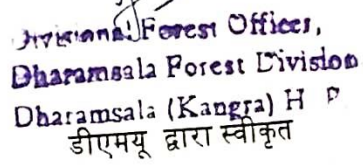 Divisional Forest Officer,
Dharamsala Forest Division
Dharamsala (Kangra) H P
डीएमयू द्वारा स्वीकृत